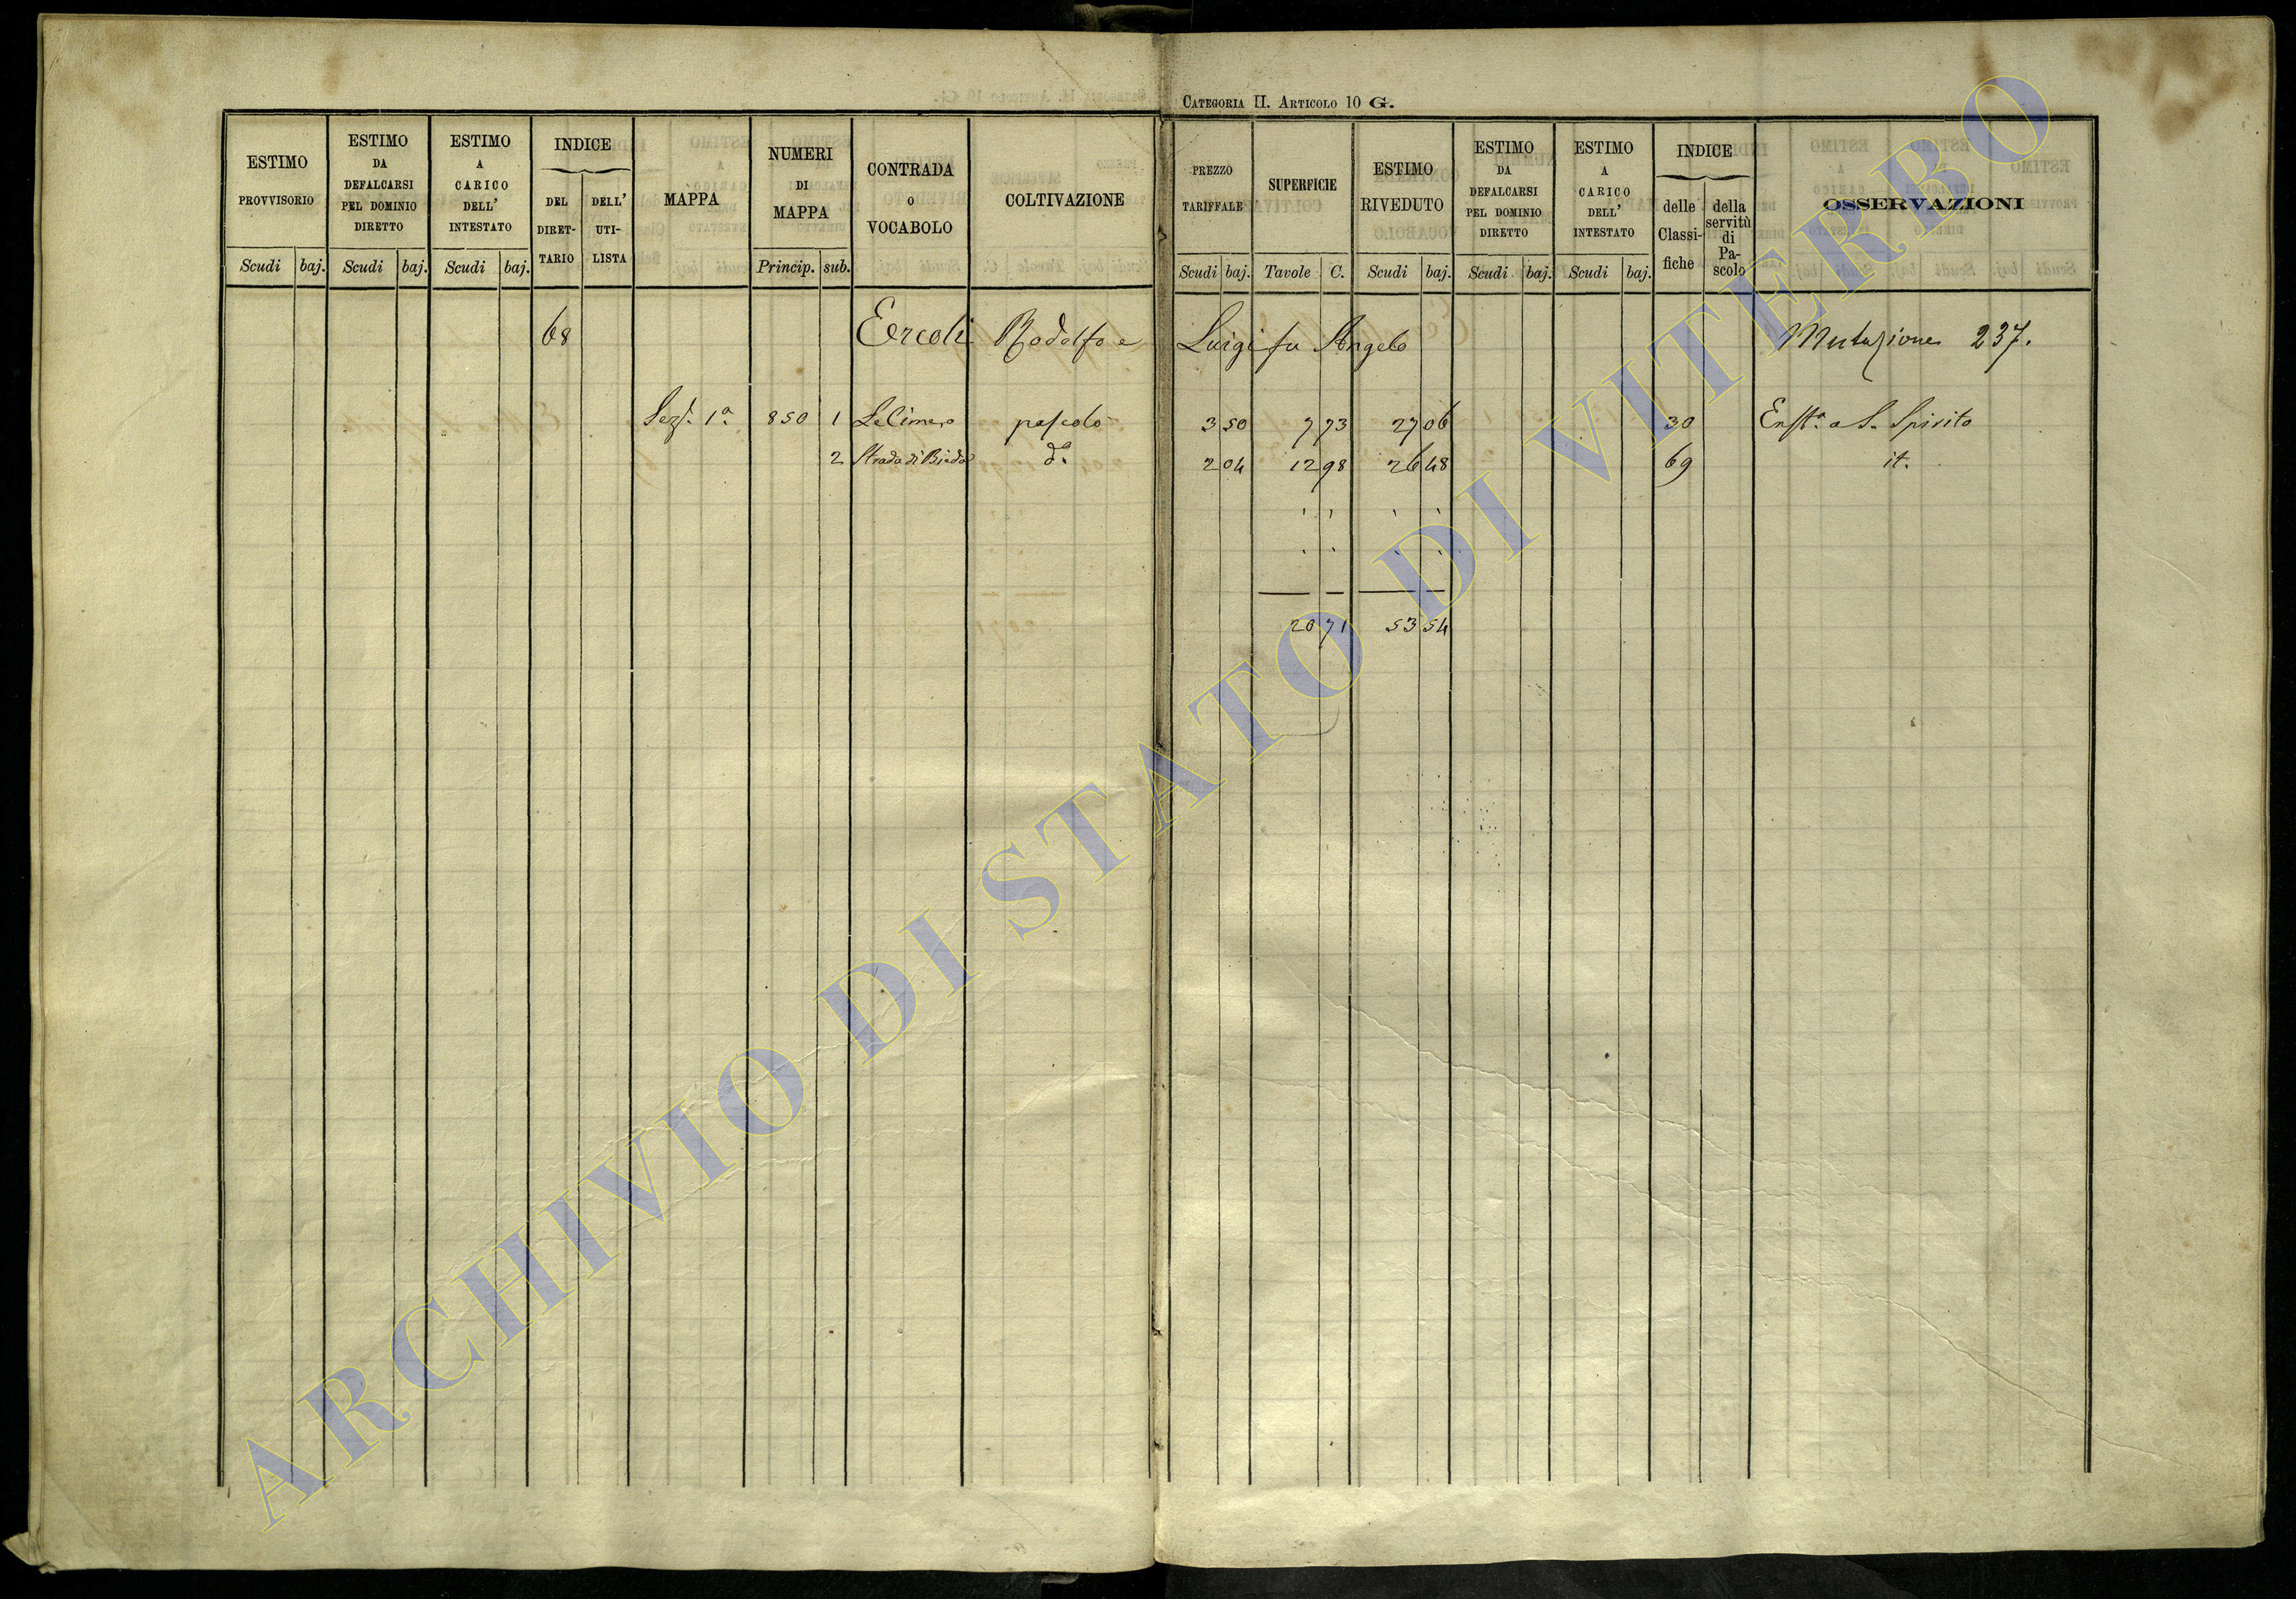 CATEGORIA II. ARTICOLO 10 G.
ESTIMO PROVVISORIO
Scudi baj.
ESTIMO DA DEFALCARSI PEL DOMINIO DIRETTO
Scudi baj.
ESTIMO A CARICO DELL' INTESTATO
Scudi baj.
INDICE
DEL DIRET- TARIO
DELL' UTI- LISTA
MAPPA
NUMERI DI MAPPA
Princip. sub.
CONTRADA O VOCABOLO
COLTIVAZIONE
PREZZO TARIFFALE
Scudi baj.
SUPERFICIE
Tavole C.
ESTIMO RIVEDUTO
Scudi baj.
ESTIMO DA DEFALCARSI PEL DOMINIO DIRETTO
Scudi baj.
ESTIMO A CARICO DELL' INTESTATO
Scudi baj.
INDICE
delle Classi- fiche
della servitù di Pa- scolo
OSSERVAZIONI
68 Ercoli Rodolfo e Luigi fu Angelo Mutazione 237.
Sez. 1a. 850 1 pascolo 3 50 7 73 27 06 30 a S. Spirito
2 Strada di d.o 2 04 12 98 26 48 69 it.
20 71 53 54
ARCHIVIO DI STATO DI VITERBO